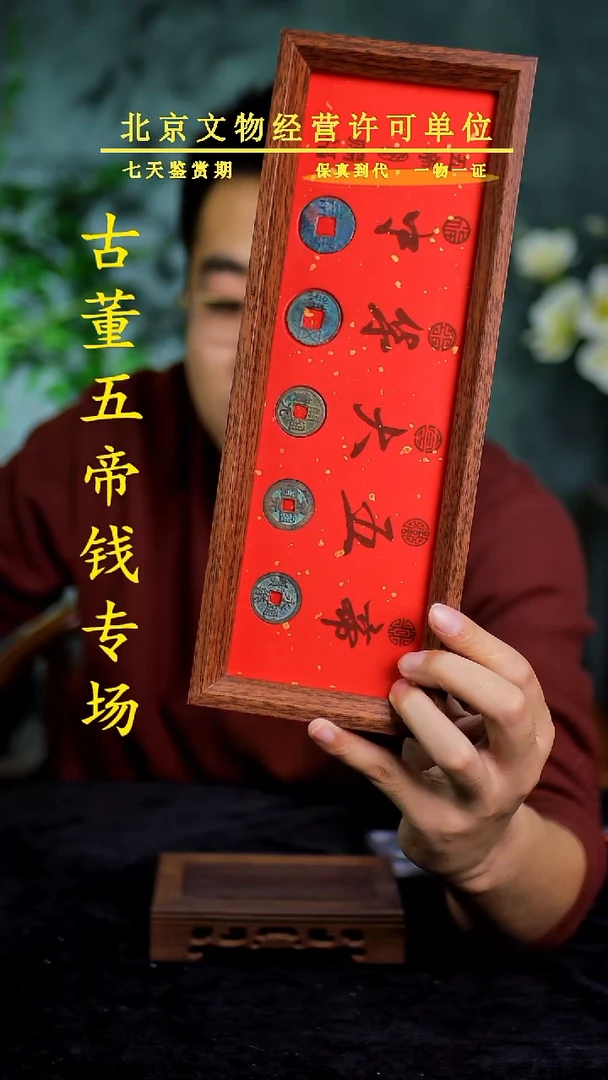 北京文物经营许可单位
七天鉴赏期 保真到代 一物一证
古董五帝钱专场
中
大
五
帝